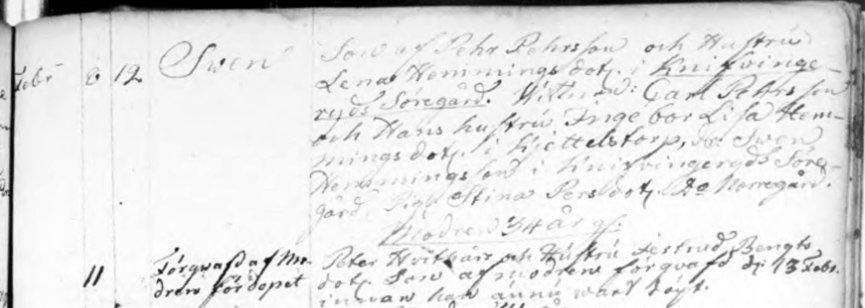 Febr 8 12 Swen Son af Pehr Pehrsson och Hustru
Lena Hemmings dotr. i Knixvinge-
ryds Söregård. Wittnen: Carl Pehrsson
och Hans hustru Ingebor Lisa Hem-
mings dotr. i Kjettelstorp, dr. Swen
Hemmingsson i Knixvingeryds Söre-
gård, Pig. Stina Persdotr. Do Norregård.
Modren 34 år gl.
11 Förqvafd af Mo- Peter Hvitkärs och Hustru Bengts
dren för dopet dotr. Son af modren förqvafd d: 13 Febr.
innan han ännu wart döpt.